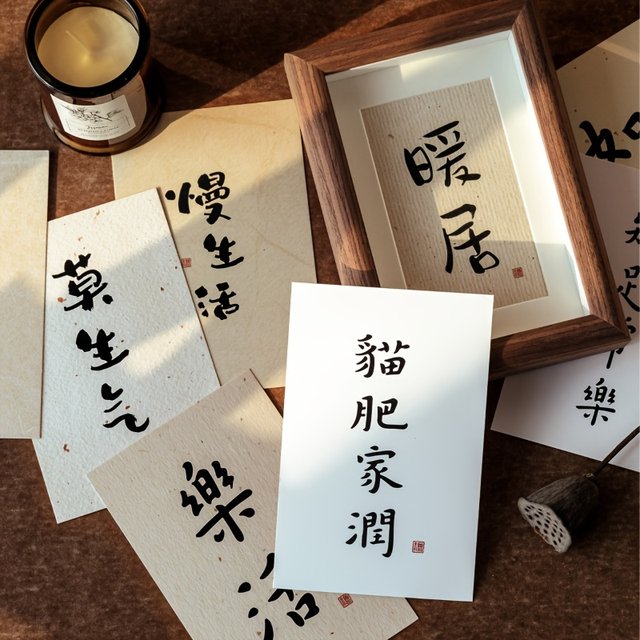 慢生活
莫生气
暖居
貓肥家潤
樂
活
樂